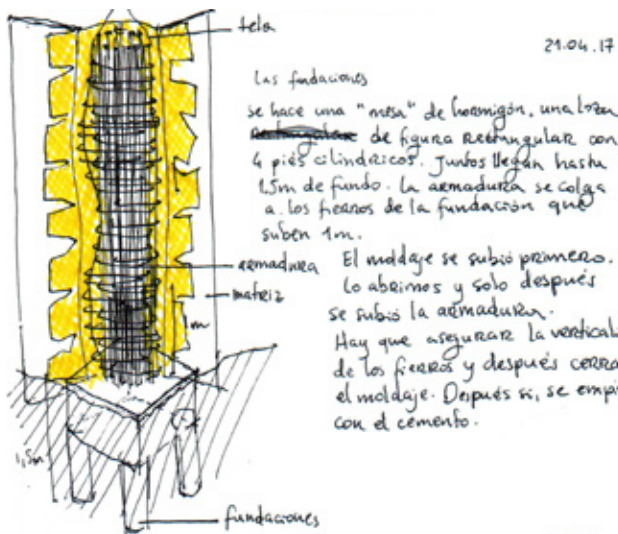 tela
21.04.17
Las fundaciones
se hace una "mesa" de hormigón, una loza
de figura rectangular con
4 piés cilíndricos. Juntos llegan hasta
1.5m de fundo. La armadura se colga
a los fierros de la fundación que
suben 1m.
armadura
matriz
1m
El moldaje se subió primero.
Lo abrimos y solo después
se subió la armadura.
Hay que asegurar la verticali
de los fierros y después cerra
el moldaje. Después si, se empi
con el cemento.
1,5m
fundaciones